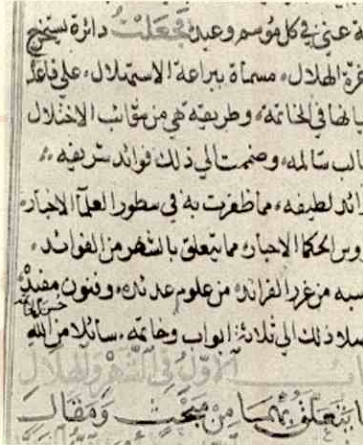 عني في كل موسم وعيد فجعلت دائرة يستخرج
غرة الهلال، مسماة ببراعة الاستهلال، على
في الخاتمة، وطريقة هي من شوائب الاختلال
سالمه، وضممت الي ذلك فوائد شريفه
لطيفه، مما ظفرت به في سطور العلمآ الاخيار
الحكما الاحبار، مما يتعلق بالشهر من الفوائد،
من غرر الفرائد، من علوم عديده، وفنون مفيده
ذلك الي ثلاثة ابواب وخاتمه، سائلا من الله
الاول في الشهر والهلال
يتعلق بهما من مبحث ومقال